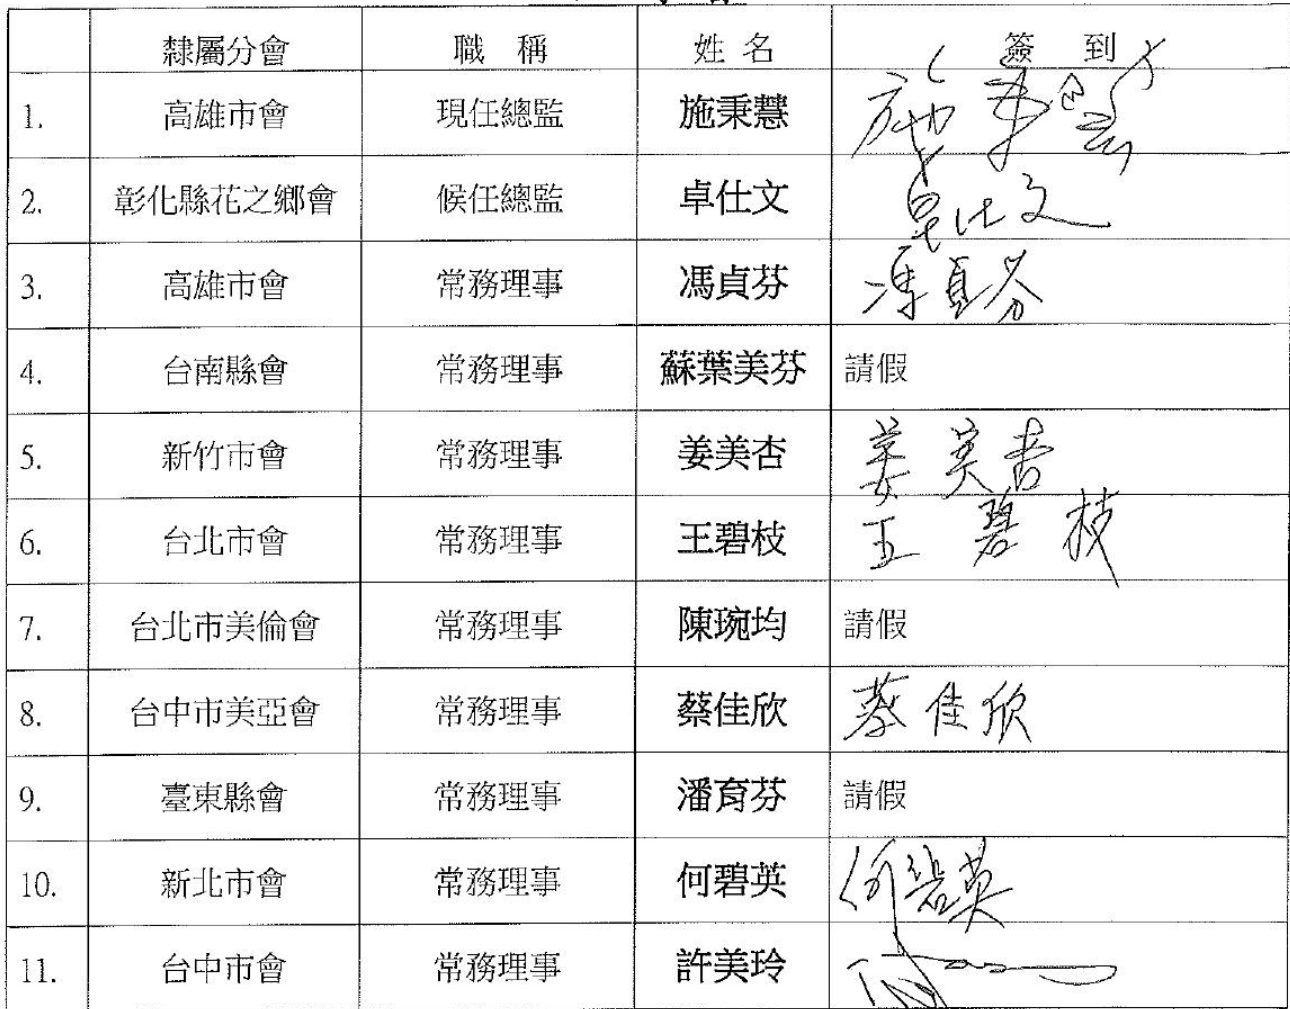 隸屬分會 職 稱 姓 名 簽 到
1. 高雄市會 現任總監 施秉慧 施秉慧
2. 彰化縣花之鄉會 候任總監 卓仕文 卓仕文
3. 高雄市會 常務理事 馮貞芬 馮貞芬
4. 台南縣會 常務理事 蘇葉美芬 請假
5. 新竹市會 常務理事 姜美杏 姜美杏
6. 台北市會 常務理事 王碧枝 王碧枝
7. 台北市美倫會 常務理事 陳琬均 請假
8. 台中市美亞會 常務理事 蔡佳欣 蔡佳欣
9. 臺東縣會 常務理事 潘育芬 請假
10. 新北市會 常務理事 何碧英 何碧英
11. 台中市會 常務理事 許美玲